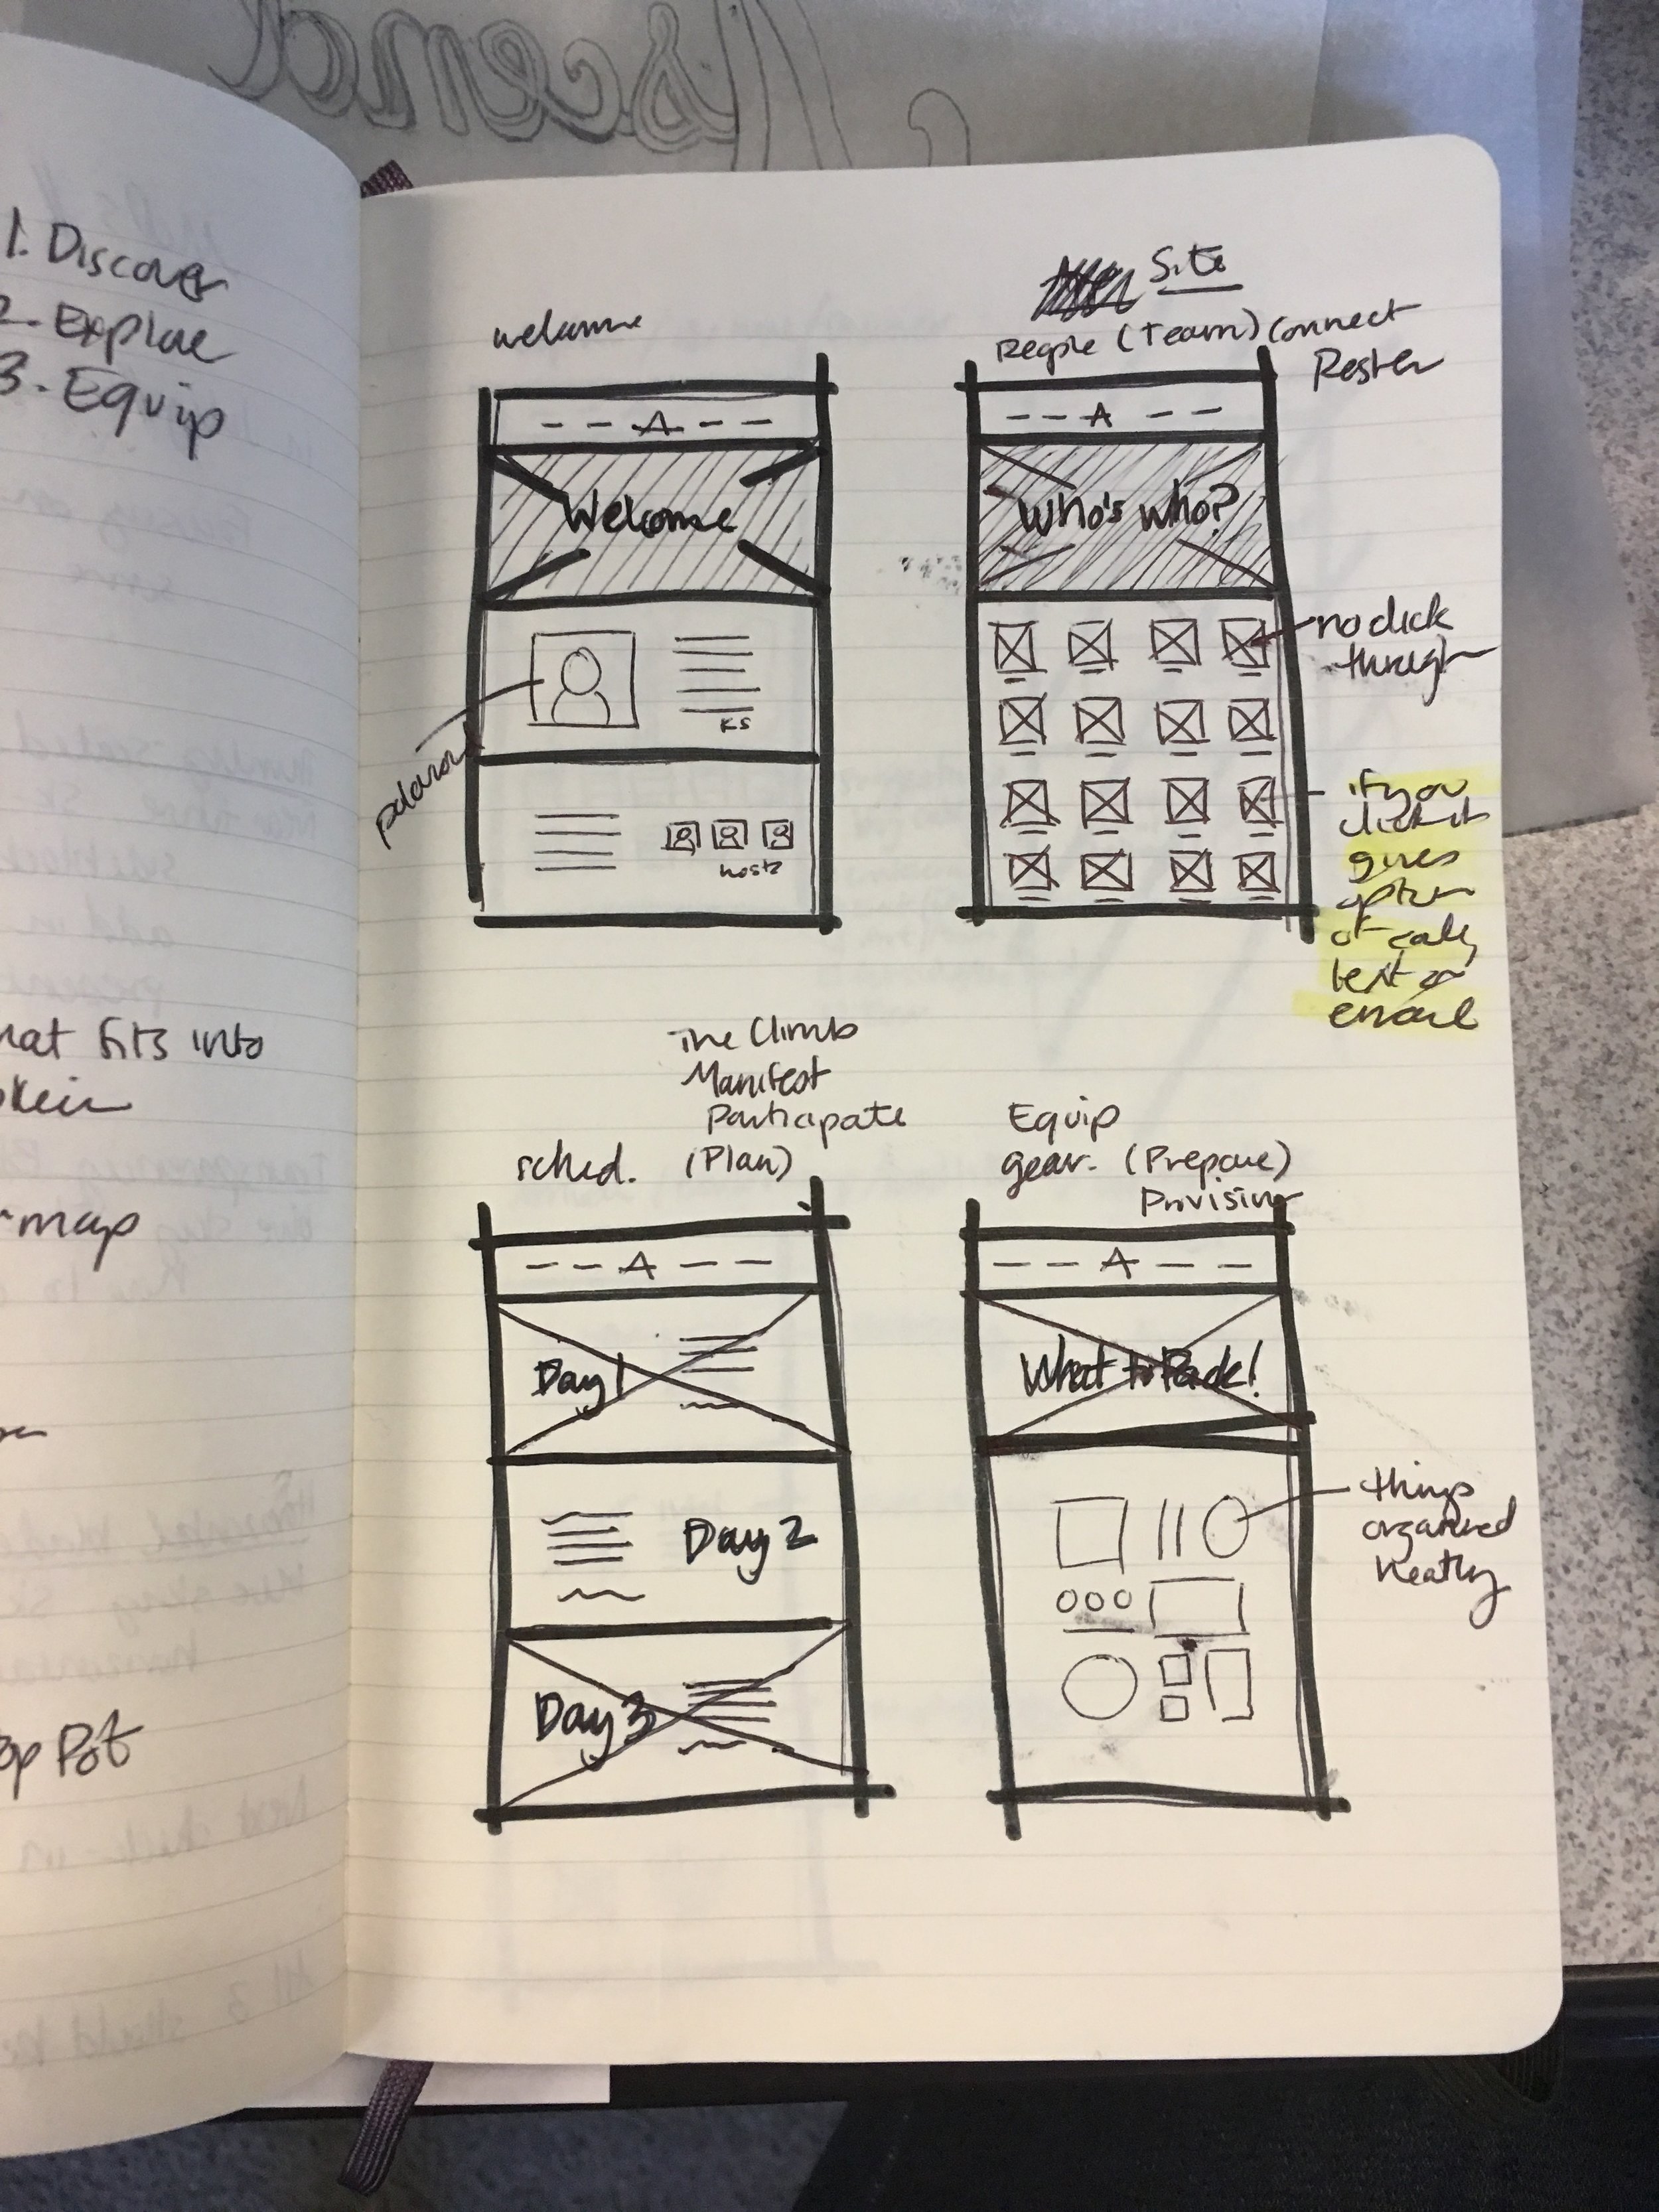 Ascend
1. Discover
2. Explore
3. Equip
hat fits into
map
op Pot
Site
welcome
People (Team) Connect
Roster
A
Welcome
polaroid
KS
hosts
A
Who's who?
no click
through
if you
click it
gives
option
of call,
text or
email
The Climb
Manifest
Participate
sched. (Plan)
A
Day 1
Day 2
Day 3
Equip
gear. (Prepare)
Provision
A
What to Pack!
things
organized
neatly